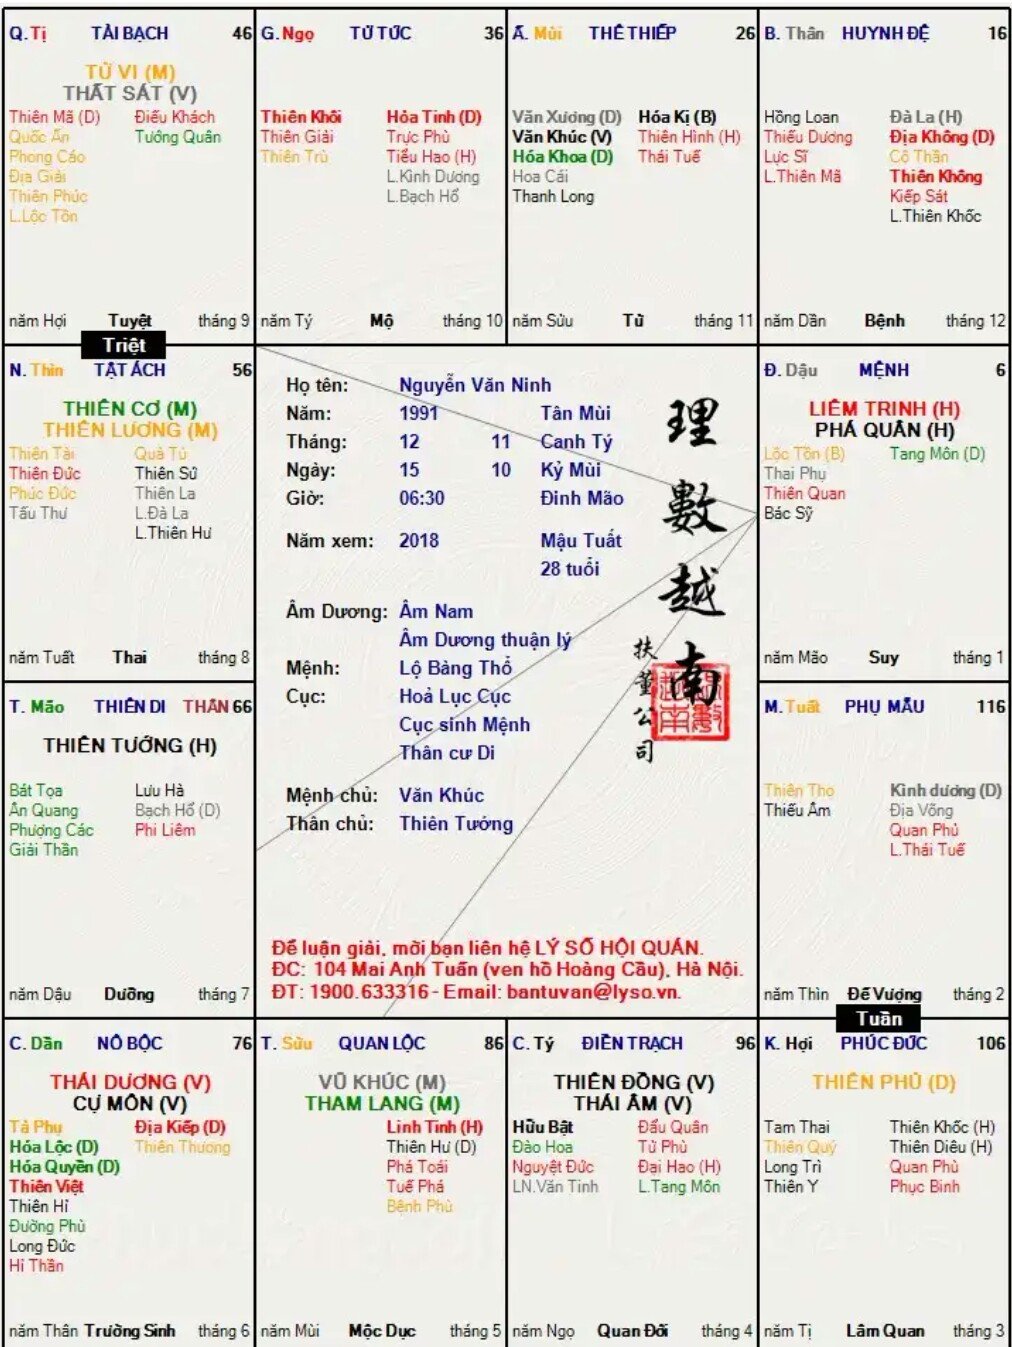 Q. Tị TÀI BẠCH 46
TỬ VI (M)
THẤT SÁT (V)
Thiên Mã (D) Điếu Khách
Quốc Ấn Tướng Quân
Phong Cáo
Địa Giải
Thiên Phúc
L.Lộc Tồn
năm Hợi Tuyệt tháng 9
G. Ngọ TỬ TỨC 36
Thiên Khôi Hỏa Tinh (D)
Thiên Giải Trực Phù
Thiên Trù Tiểu Hao (H)
L.Kình Dương
L.Bạch Hổ
năm Tý Mộ tháng 10
Ấ. Mùi THÊ THIẾP 26
Văn Xương (D) Hóa Kị (B)
Văn Khúc (V) Thiên Hình (H)
Hóa Khoa (D) Thái Tuế
Hoa Cái
Thanh Long
năm Sửu Tử tháng 11
B. Thân HUYNH ĐỆ 16
Hồng Loan Đà La (H)
Thiếu Dương Địa Không (D)
Lực Sĩ Cô Thần
L.Thiên Mã Thiên Không
Kiếp Sát
L.Thiên Khốc
năm Dần Bệnh tháng 12
Triệt
N. Thìn TẬT ÁCH 56
THIÊN CƠ (M)
THIÊN LƯƠNG (M)
Thiên Tài Quả Tú
Thiên Đức Thiên Sứ
Phúc Đức Thiên La
Tấu Thư L.Đà La
L.Thiên Hư
năm Tuất Thai tháng 8
Họ tên: Nguyễn Văn Ninh
Năm: 1991 Tân Mùi
Tháng: 12 11 Canh Tý
Ngày: 15 10 Kỷ Mùi
Giờ: 06:30 Đinh Mão
Năm xem: 2018 Mậu Tuất
28 tuổi
Âm Dương: Âm Nam
Âm Dương thuận lý
Mệnh: Lộ Bàng Thổ
Cục: Hoả Lục Cục
Cục sinh Mệnh
Thân cư Di
Mệnh chủ: Văn Khúc
Thân chủ: Thiên Tướng
理數越南
扶董公司
Để luận giải, mời bạn liên hệ LÝ SỐ HỘI QUÁN.
ĐC: 104 Mai Anh Tuấn (ven hồ Hoàng Cầu), Hà Nội.
ĐT: 1900.633316 - Email: bantuvan@lyso.vn.
Đ. Dậu MỆNH 6
LIÊM TRINH (H)
PHÁ QUÂN (H)
Lộc Tồn (B) Tang Môn (D)
Thai Phụ
Thiên Quan
Bác Sỹ
năm Mão Suy tháng 1
T. Mão THIÊN DI THÂN 66
THIÊN TƯỚNG (H)
Bát Tọa Lưu Hà
Ân Quang Bạch Hổ (D)
Phượng Các Phi Liêm
Giải Thần
năm Dậu Dưỡng tháng 7
M. Tuất PHỤ MẪU 116
Thiên Thọ Kình dương (D)
Thiếu Âm Địa Võng
Quan Phủ
L.Thái Tuế
năm Thìn Đế Vượng tháng 2
Tuần
C. Dần NÔ BỘC 76
THÁI DƯƠNG (V)
CỰ MÔN (V)
Tả Phụ Địa Kiếp (D)
Hóa Lộc (D) Thiên Thương
Hóa Quyền (D)
Thiên Việt
Thiên Hỉ
Đường Phù
Long Đức
Hỉ Thần
năm Thân Trường Sinh tháng 6
T. Sửu QUAN LỘC 86
VŨ KHÚC (M)
THAM LANG (M)
Linh Tinh (H)
Thiên Hư (D)
Phá Toái
Tuế Phá
Bệnh Phù
năm Mùi Mộc Dục tháng 5
C. Tý ĐIỀN TRẠCH 96
THIÊN ĐỒNG (V)
THÁI ÂM (V)
Hữu Bật Đẩu Quân
Đào Hoa Tử Phù
Nguyệt Đức Đại Hao (H)
LN.Văn Tinh L.Tang Môn
năm Ngọ Quan Đới tháng 4
K. Hợi PHÚC ĐỨC 106
THIÊN PHỦ (D)
Tam Thai Thiên Khốc (H)
Thiên Quý Thiên Diêu (H)
Long Trì Quan Phù
Thiên Y Phục Binh
năm Tị Lâm Quan tháng 3